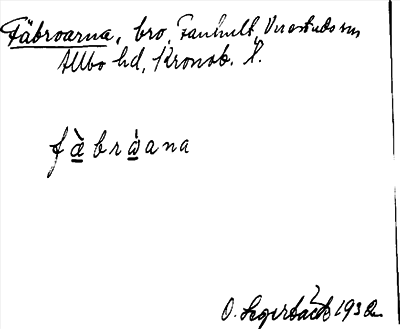 Fäbroarna, bro, Fanhult, Virestads sn
Allbo hd, Kronob. l.
fàbràana
O. Segerbäck 1932